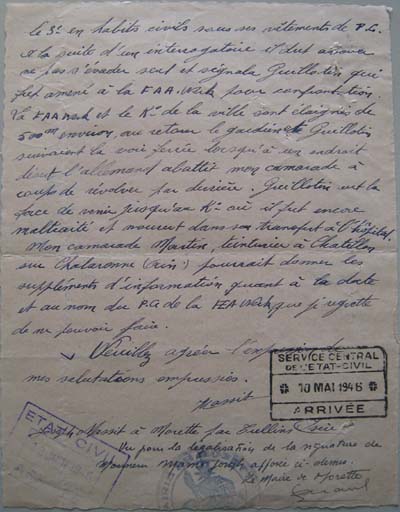 le 3e en habits civils sous ses vêtements de P.G.
A la suite d'un interrogatoire il dut avouer
ne pas s'évader seul et signala Guillotin qui
fut amené à la FAA.Werk pour confrontation.
La FAA Werk et le Ko de la ville sont éloignés de
500m environ, au retour le gardien et Guillotin
suivaient la voie ferrée lorsqu'à un endroit
désert l'allemand abattit mon camarade à
coups de révolver par derrière. Guillotin eut la
force de venir jusqu'au Ko où il fut encore
maltraité et mourut dans son transfert à l'hôpital.
Mon camarade Martin, teinturier à Chatillon
sur Chalaronne (Ain) pourrait donner les
suppléments d'information quant à la date
et au nom du P.G de la FAA Werk que je regrette
de ne pouvoir faire.
Veuillez agréer l'expression de
mes salutations empressées.
Massit
SERVICE CENTRAL
DE L'ETAT-CIVIL
10 MAI 1946
ARRIVÉE
Joseph Massit à Morette par Tullins Isère
ETAT-CIVIL
Vu pour la légalisation de la signature de
Monsieur Massit Joseph apposée ci-dessus.
Le Maire de Morette